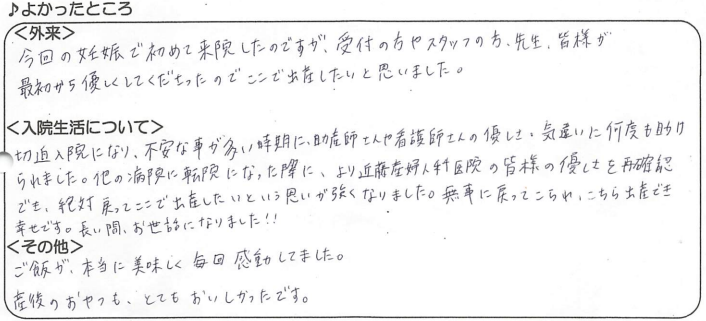 ♪よかったところ
<外来>
今回の妊娠で初めて来院したのですが、受付の方やスタッフの方、先生、皆様が
最初から優しくしてくださったのでここで出産したいと思いました。
<入院生活について>
切迫入院になり、不安な事が多い時期に、助産師さんや看護師さんの優しさ、気遣いに何度も助け
られました。他の病院に転院になった際に、より近藤産婦人科医院の皆様の優しさを再確認
でき、絶対戻ってここで出産したいという思いが強くなりました。無事に戻ってこられ、こちら出産でき
幸せです。長い間、お世話になりました!!
<その他>
ご飯が、本当に美味しく毎回感動してました。
産後のおやつも、とてもおいしかったです。